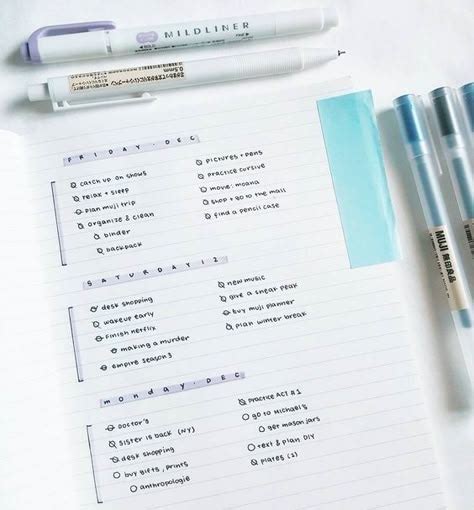 MILDLINER
0.5mm
FRIDAY . DEC
catch up on shows
relax + sleep
plan muji trip
organize & clean
binder
backpack
pictures + pens
practice cursive
movie: moana
shop + go to the mall
find a pencil case
SATURDAY 12
desk shopping
wakeup early
finish netflix
making a murder
empire season 3
new music
give a sneak peak
buy muji planner
plan winter break
monday . DEC
Doctor's
Sister is back (NY)
desk shopping
buy gifts, prints
anthropologie
Practice ACT #1
go to Michael's
get mason jars
text & plan DIY
plates (2)
MUJI 無印良品